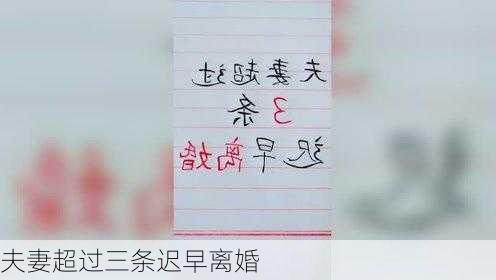 夫妻超过
3条
迟早离婚
夫妻超过三条迟早离婚